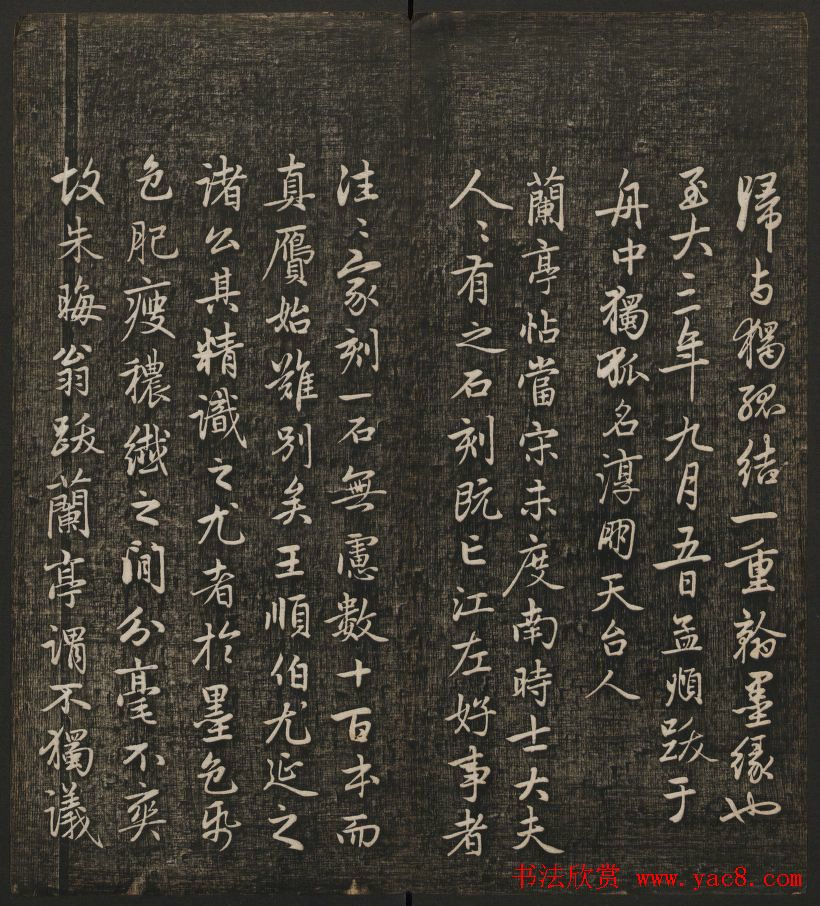 歸与獨孤結一重翰墨緣也
至大三年九月五日孟頫跋于
舟中獨孤名淳朋天台人
蘭亭帖當宋未度南時士大夫
人〻有之石刻既亡江左好事者
往〻家刻一石無慮數十百本而
真贗始難別矣王順伯尤延之
諸公其精識之尤者於墨色帋
色肥瘦穠纖之間分毫不爽
故朱晦翁跋蘭亭謂不獨議
书法欣赏 www.yac8.com